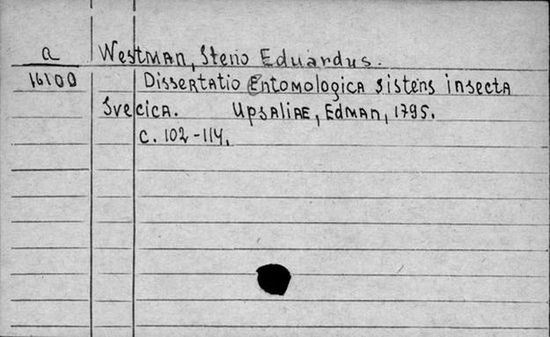 a Westman, Steno Eduardus.
16100 Dissertatio Entomologica sistens insecta
Svecica. Upsaliae, Edman, 1795.
c. 102-114.